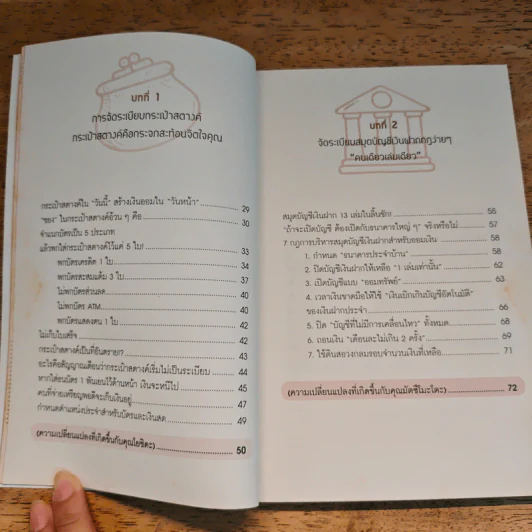 บทที่ 1
การจัดระเบียบกระเป๋าสตางค์
กระเป๋าสตางค์คือกระจกสะท้อนจิตใจคุณ
กระเป๋าสตางค์ใน "วันนี้" สร้างเงินออมใน "วันหน้า" 29
"ของ" ในกระเป๋าสตางค์อ้วน ๆ คือ 30
จำแนกบัตรเป็น 5 ประเภท
แล้วพกใส่กระเป๋าสตางค์ไว้แค่ 5 ใบ! 33
พกบัตรเครดิต 1 ใบ 34
พกบัตรสะสมแต้ม 3 ใบ 37
ไม่พกบัตรส่วนลด 40
ไม่พกบัตร ATM 40
พกบัตรแสดงตน 1 ใบ 42
ไม่เก็บใบเสร็จ 42
กระเป๋าสตางค์เป็นที่อันตราย!? 43
อะไรคือสัญญาณเตือนว่ากระเป๋าสตางค์เริ่มไม่เป็นระเบียบ 44
หากใส่ธนบัตร 1 พันเยนไว้ด้านหน้า เงินจะหนีไป 45
คนที่จ่ายเหรียญพอดีจะเก็บเงินอยู่ 47
กำหนดตำแหน่งประจำสำหรับบัตรและเงินสด 49
(ความเปลี่ยนแปลงที่เกิดขึ้นกับคุณโยชิดะ) 50
บทที่ 2
จัดระเบียบสมุดบัญชีเงินฝากกฎง่ายๆ
"คนเดียวเล่มเดียว"
สมุดบัญชีเงินฝาก 13 เล่มในลิ้นชัก! 55
"ถ้าจะเปิดบัญชี ต้องเปิดกับธนาคารใหญ่ ๆ" จริงหรือไม่ 57
7 กฎการบริหารสมุดบัญชีเงินฝากสำหรับออมเงิน 58
1. กำหนด "ธนาคารประจำบ้าน" 58
2. ปิดบัญชีเงินฝากให้เหลือ "1 เล่มเท่านั้น" 62
3. เปิดบัญชีแบบ "ออมทรัพย์" 63
4. เวลาเงินขาดมือให้ใช้ "เงินเบิกเกินบัญชีอัตโนมัติ"
ของเงินฝากประจำ 66
5. ปิด "บัญชีที่ไม่มีการเคลื่อนไหว" ทั้งหมด 68
6. ถอนเงิน "เดือนละไม่เกิน 2 ครั้ง" 69
7. ใช้ดินสอวงกลมรอบจำนวนเงินที่เหลือ 71
(ความเปลี่ยนแปลงที่เกิดขึ้นกับคุณมัตซึโมะโตะ) 72